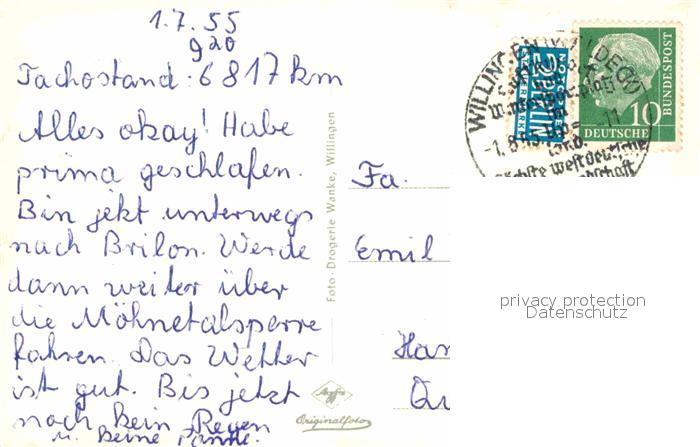 1.7.55
9 20
Tachostand: 6817 km
Alles okay! Habe
prima geschlafen.
Bin jetzt unterwegs
nach Brilon. Werde
dann weiter über
die Möhnetalsperre
fahren. Das Wetter
ist gut. Bis jetzt
noch kein Regen
u. keine Panne.
Foto-Drogerie Wanke, Willingen
Agfa
Originalfoto
WILLINGEN (WALDECK)
NOTOPFER
2 BERLIN
STEUERMARKE
10
DEUTSCHE
BUNDESPOST
westdeutsche
Fa.
Emil
Han
Qu
privacy protection
Datenschutz